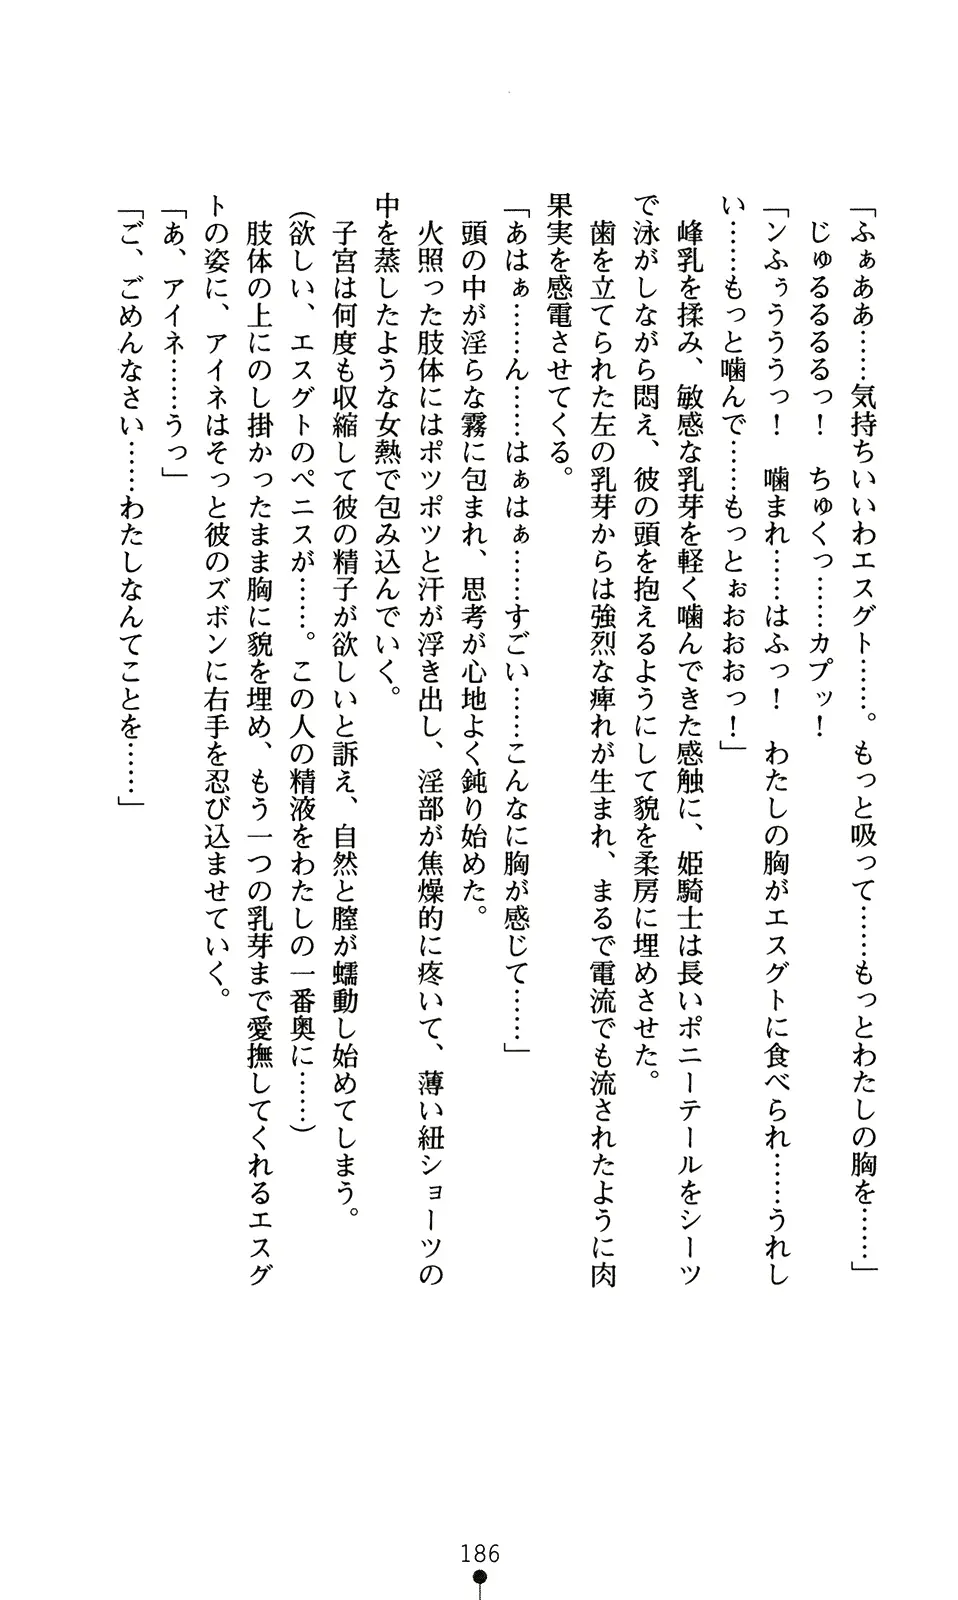 「ふぁああ……気持ちいいわエスグト……。もっと吸って……もっとわたしの胸を……」
じゅるるるるっ！　ちゅくっ……カプッ！
「ンふぅうううっ！　噛まれ……はふっ！　わたしの胸がエスグトに食べられ……うれし
い……もっと噛んで……もっとぉおおおっ！」
峰乳を揉み、敏感な乳芽を軽く噛んできた感触に、姫騎士は長いポニーテールをシーツ
で泳がしながら悶え、彼の頭を抱えるようにして貌を柔房に埋めさせた。
歯を立てられた左の乳芽からは強烈な痺れが生まれ、まるで電流でも流されたように肉
果実を感電させてくる。
「あはぁ……ん……はぁはぁ……すごい……こんなに胸が感じて……」
頭の中が淫らな霧に包まれ、思考が心地よく鈍り始めた。
火照った肢体にはポツポツと汗が浮き出し、淫部が焦燥的に疼いて、薄い紐ショーツの
中を蒸したような女熱で包み込んでいく。
子宮は何度も収縮して彼の精子が欲しいと訴え、自然と膣が蠕動し始めてしまう。
（欲しい、エスグトのペニスが……。この人の精液をわたしの一番奥に……）
肢体の上にのし掛かったまま胸に貌を埋め、もう一つの乳芽まで愛撫してくれるエスグ
トの姿に、アイネはそっと彼のズボンに右手を忍び込ませていく。
「あ、アイネ……うっ」
「ご、ごめんなさい……わたしなんてことを……」
186